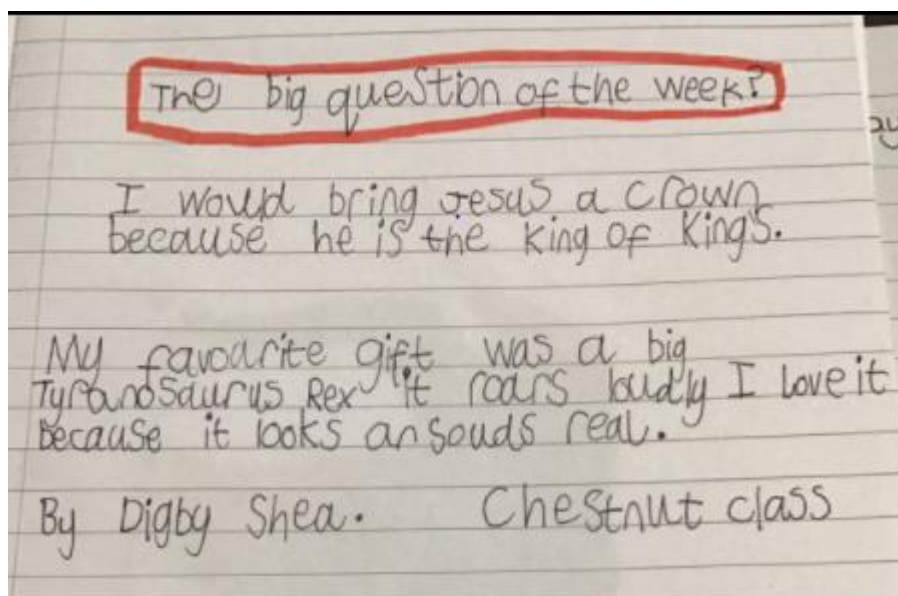 The big question of the week?
I would bring Jesus a crown
because he is the King of King's.
My favourite gift was a big
Tyranosaurus Rex it roars loudly I love it
because it looks an souds real.
By Digby Shea. Chestnut class